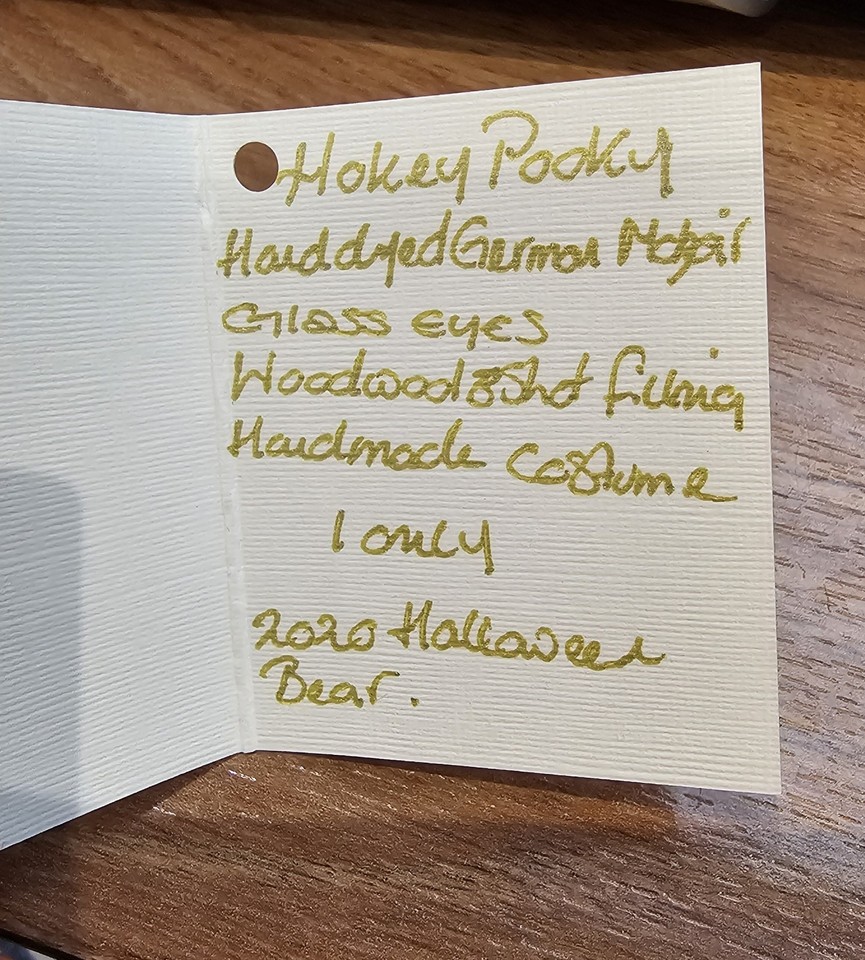 Hokey Pooky
Hand dyed German Mohair
Glass eyes
Woodwool & Shot filling
Handmade costume
1 only
2020 Halloween
Bear.